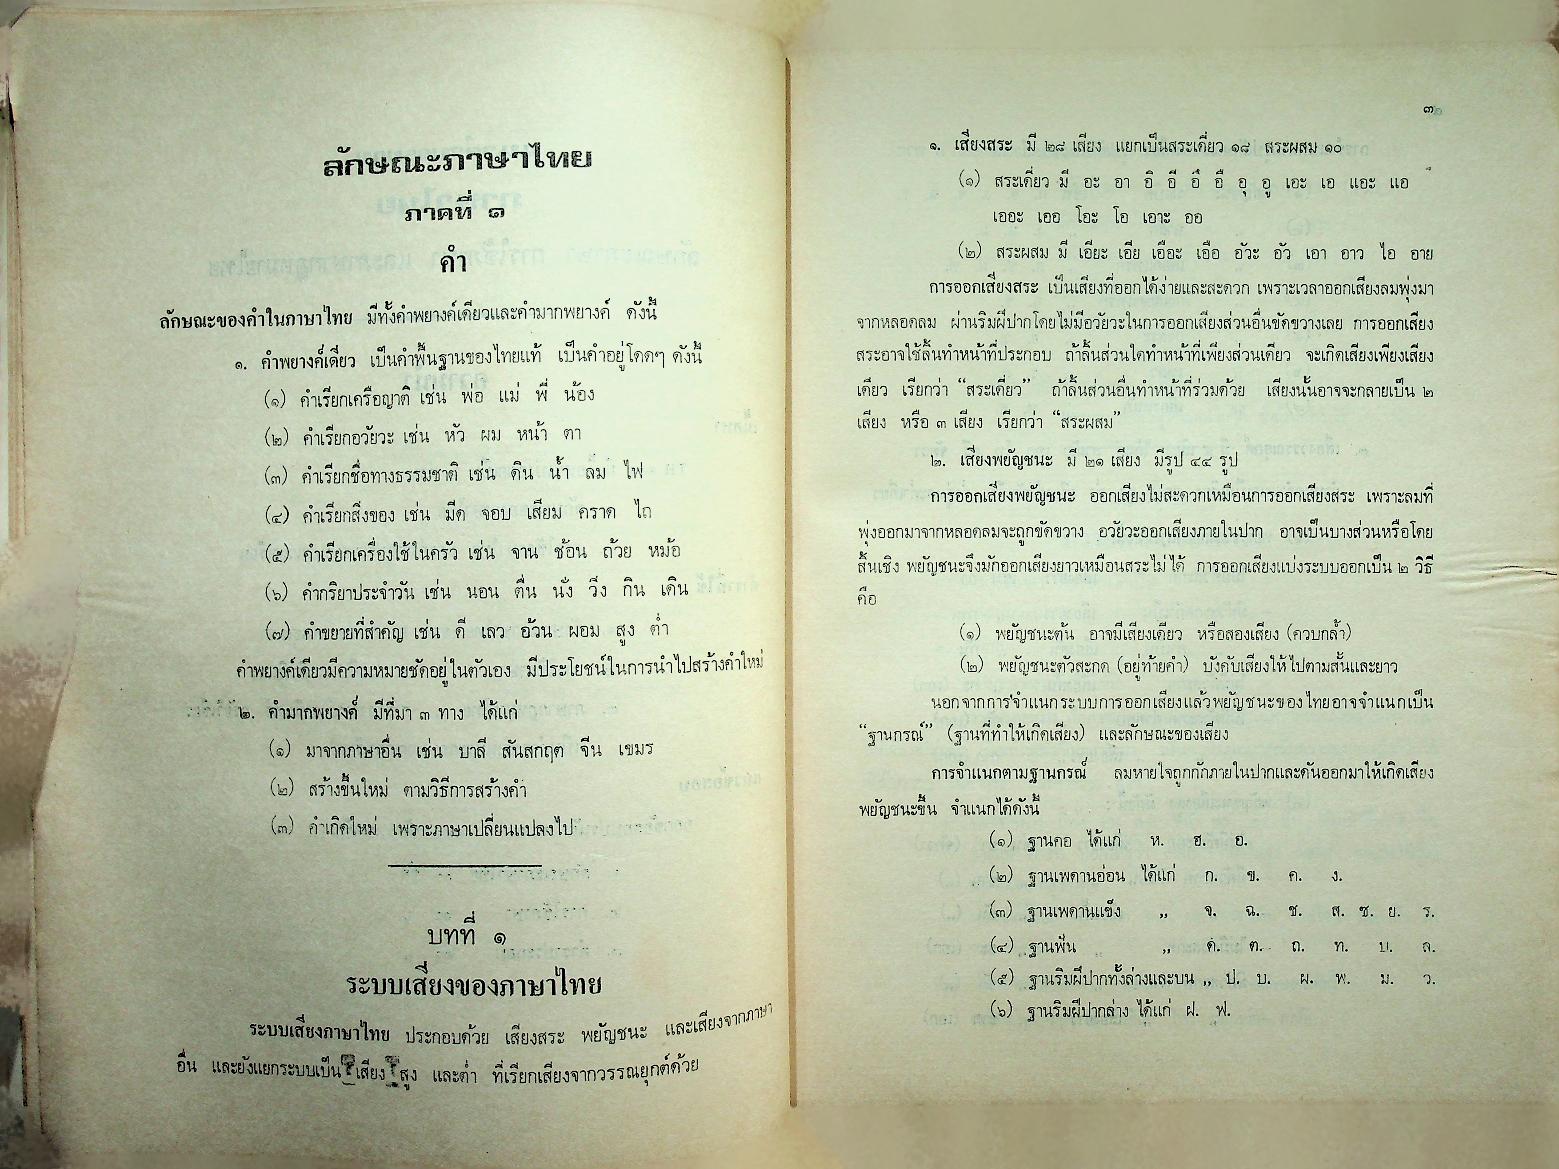 ลักษณะภาษาไทย
ภาคที่ ๑
คำ
ลักษณะของคำในภาษาไทย มีทั้งคำพยางค์เดียวและคำมากพยางค์ ดังนี้
๑. คำพยางค์เดียว เป็นคำพื้นฐานของไทยแท้ เป็นคำอยู่โดดๆ ดังนี้
(๑) คำเรียกเครือญาติ เช่น พ่อ แม่ พี่ น้อง
(๒) คำเรียกอวัยวะ เช่น หัว ผม หน้า ตา
(๓) คำเรียกชื่อทางธรรมชาติ เช่น ดิน น้ำ ลม ไฟ
(๔) คำเรียกสิ่งของ เช่น มีด จอบ เสียม คราด ไถ
(๕) คำเรียกเครื่องใช้ในครัว เช่น จาน ช้อน ถ้วย หม้อ
(๖) คำกริยาประจำวัน เช่น นอน ตื่น นั่ง วิ่ง กิน เดิน
(๗) คำขยายที่สำคัญ เช่น ดี เลว อ้วน ผอม สูง ต่ำ
คำพยางค์เดียวมีความหมายชัดอยู่ในตัวเอง มีประโยชน์ในการนำไปสร้างคำใหม่
๒. คำมากพยางค์ มีที่มา ๓ ทาง ได้แก่
(๑) มาจากภาษาอื่น เช่น บาลี สันสกฤต จีน เขมร
(๒) สร้างขึ้นใหม่ ตามวิธีการสร้างคำ
(๓) คำเกิดใหม่ เพราะภาษาเปลี่ยนแปลงไป
บทที่ ๑
ระบบเสียงของภาษาไทย
ระบบเสียงภาษาไทย ประกอบด้วย เสียงสระ พยัญชนะ และเสียงจากภาษา
อื่น และยังแยกระบบเป็น เสียง สูง และต่ำ ที่เรียกเสียงจากวรรณยุกต์ด้วย
๓
๑. เสียงสระ มี ๒๘ เสียง แยกเป็นสระเดี่ยว ๑๘ สระผสม ๑๐
(๑) สระเดี่ยว มี อะ อา อิ อี อึ อื อุ อู เอะ เอ แอะ แอ
เออะ เออ โอะ โอ เอาะ ออ
(๒) สระผสม มี เอียะ เอีย เอือะ เอือ อัวะ อัว เอา อาว ไอ อาย
การออกเสียงสระ เป็นเสียงที่ออกได้ง่ายและสะดวก เพราะเวลาออกเสียงลมพุ่งมา
จากหลอดลม ผ่านริมฝีปากโดยไม่มีอวัยวะในการออกเสียงส่วนอื่นขัดขวางเลย การออกเสียง
สระอาจใช้ลิ้นทำหน้าที่ประกอบ ถ้าลิ้นส่วนใดทำหน้าที่เพียงส่วนเดียว จะเกิดเสียงเพียงเสียง
เดียว เรียกว่า “สระเดี่ยว” ถ้าลิ้นส่วนอื่นทำหน้าที่ร่วมด้วย เสียงนั้นอาจจะกลายเป็น ๒
เสียง หรือ ๓ เสียง เรียกว่า “สระผสม”
๒. เสียงพยัญชนะ มี ๒๑ เสียง มีรูป ๔๔ รูป
การออกเสียงพยัญชนะ ออกเสียงไม่สะดวกเหมือนการออกเสียงสระ เพราะลมที่
พุ่งออกมาจากหลอดลมจะถูกขัดขวาง อวัยวะออกเสียงภายในปาก อาจเป็นบางส่วนหรือโดย
สิ้นเชิง พยัญชนะจึงมักออกเสียงยาวเหมือนสระไม่ได้ การออกเสียงแบ่งระบบออกเป็น ๒ วิธี
คือ
(๑) พยัญชนะต้น อาจมีเสียงเดียว หรือสองเสียง (ควบกล้ำ)
(๒) พยัญชนะตัวสะกด (อยู่ท้ายคำ) บังคับเสียงให้ไปตามสั้นและยาว
นอกจากการจำแนกระบบการออกเสียงแล้วพยัญชนะของไทยอาจจำแนกเป็น
“ฐานกรณ์” (ฐานที่ทำให้เกิดเสียง) และลักษณะของเสียง
การจำแนกตามฐานกรณ์ ลมหายใจถูกกักภายในปากและดันออกมาให้เกิดเสียง
พยัญชนะขึ้น จำแนกได้ดังนี้
(๑) ฐานคอ ได้แก่ ห. ฮ. อ.
(๒) ฐานเพดานอ่อน ได้แก่ ก. ข. ค. ง.
(๓) ฐานเพดานแข็ง ,, จ. ฉ. ช. ส. ซ. ย. ร.
(๔) ฐานฟัน ,, ด. ต. ถ. ท. น. ล.
(๕) ฐานริมฝีปากทั้งล่างและบน ,, ป. บ. ผ. พ. ม. ว.
(๖) ฐานริมฝีปากล่าง ได้แก่ ฝ. ฟ.